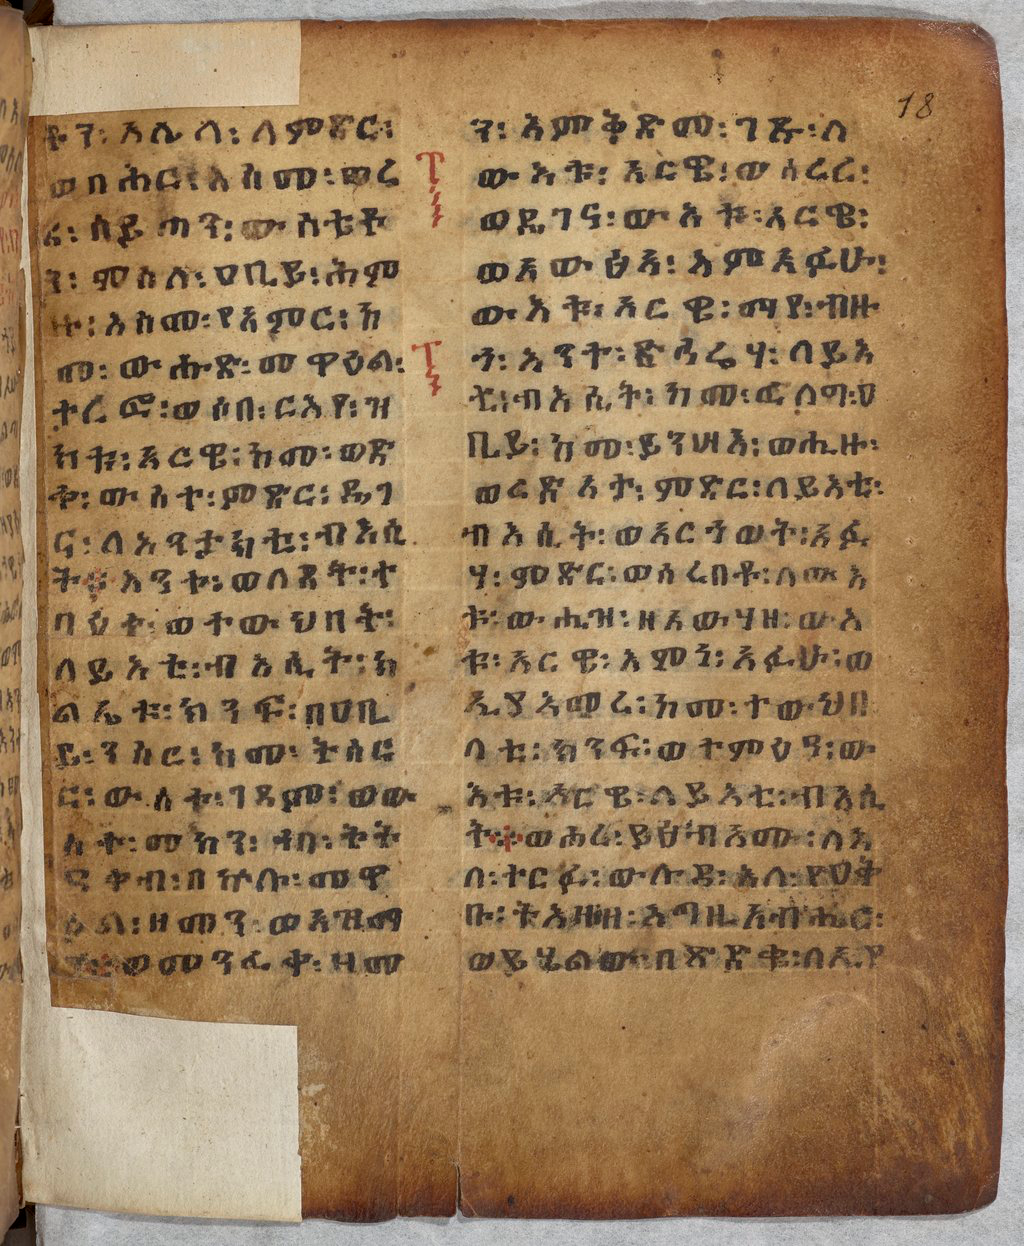 ቶን፡ አሌ ላ፡ ለምድር፡
ወበሕር፡ እስመ፡ ወረ
ረ፡ ሰይጣን፡ ውስቴቶ
ን፡ ምስለ፡ ዐቢይ፡ ሕም
ዙ፡ እስመ፡ የአምር፡ ከ
መ፡ ውሑድ፡ መዋዕል፡
ተረፎ፡ ወሶበ፡ ርእየ፡ ዝ
ክቱ፡ አርዌ፡ ከመ፡ ወድ
ቀ፡ ውስተ፡ ምድር፡ ዴገ
ና፡ ለእንታክቲ፡ ብእሲ
ት፨ እንተ፡ ወለደት፡ ተ
ባዕተ፡ ወተውህበት፡
ለይእቲ፡ ብእሲት፡ ክ
ልኤቱ፡ ክንፍ፡ በዐቢ
ይ፡ ንስር፡ ከመ፡ ትሰር
ር፡ ውስተ፡ ገዳም፡ ወው
ስተ፡ መካን፡ ኀበ፡ ትት
ዓቀብ፡ በኵሉ፡ መዋ
ዕል፡ ዘመን፡ ወአዝማ
ን፨ ወመንፈቀ፡ ዘመ
18
ን፡ እምቅድመ፡ ገጹ፡ ለ
ውእቱ፡ አርዌ፡ ወሰረረ፡
ወዴገና፡ ውእቱ፡ አርዌ፡
ወአውፅአ፡ እምአፉሁ፡
ውእቱ፡ አርዌ፡ ማየ፡ ብዙ
ኀ፡ እንተ፡ ድኅሬሃ፡ ለይእ
ቲ፡ ብእሲት፡ ከመ፡ ፈለግ፡ ዐ
ቢይ፡ ከመ፡ ይንሣእ፡ ወሒዙ፡
ወረድአት፡ ምድር፡ ለይእቲ፡
ብእሲት፡ ወአርኀወት፡ አፉ
ሃ፡ ምድር፡ ወሰረበቶ፡ ለውእ
ቱ፡ ውሒዝ፡ ዘአውሃዘ፡ ውእ
ቱ፡ አርዌ፡ እምነ፡ አፉሁ፡ ወ
ኢያእመረ፡ ከመ፡ ተውህበ
ላቲ፡ ክንፍ፡ ወተምዕዓ፡ ው
እቱ፡ አርዌ፡ ላይእቲ፡ ብእሲ
ት፨ ወሐረ፡ ይፅብአሙ፡ ለእ
ለ፡ ተርፉ፡ ውሉዳ፡ እለ፡ የዐቅ
ቡ፡ ትእዛዘ፡ እግዚአብሔር፡
ወይሄልው፡ በጽድቁ፡ በኢየ